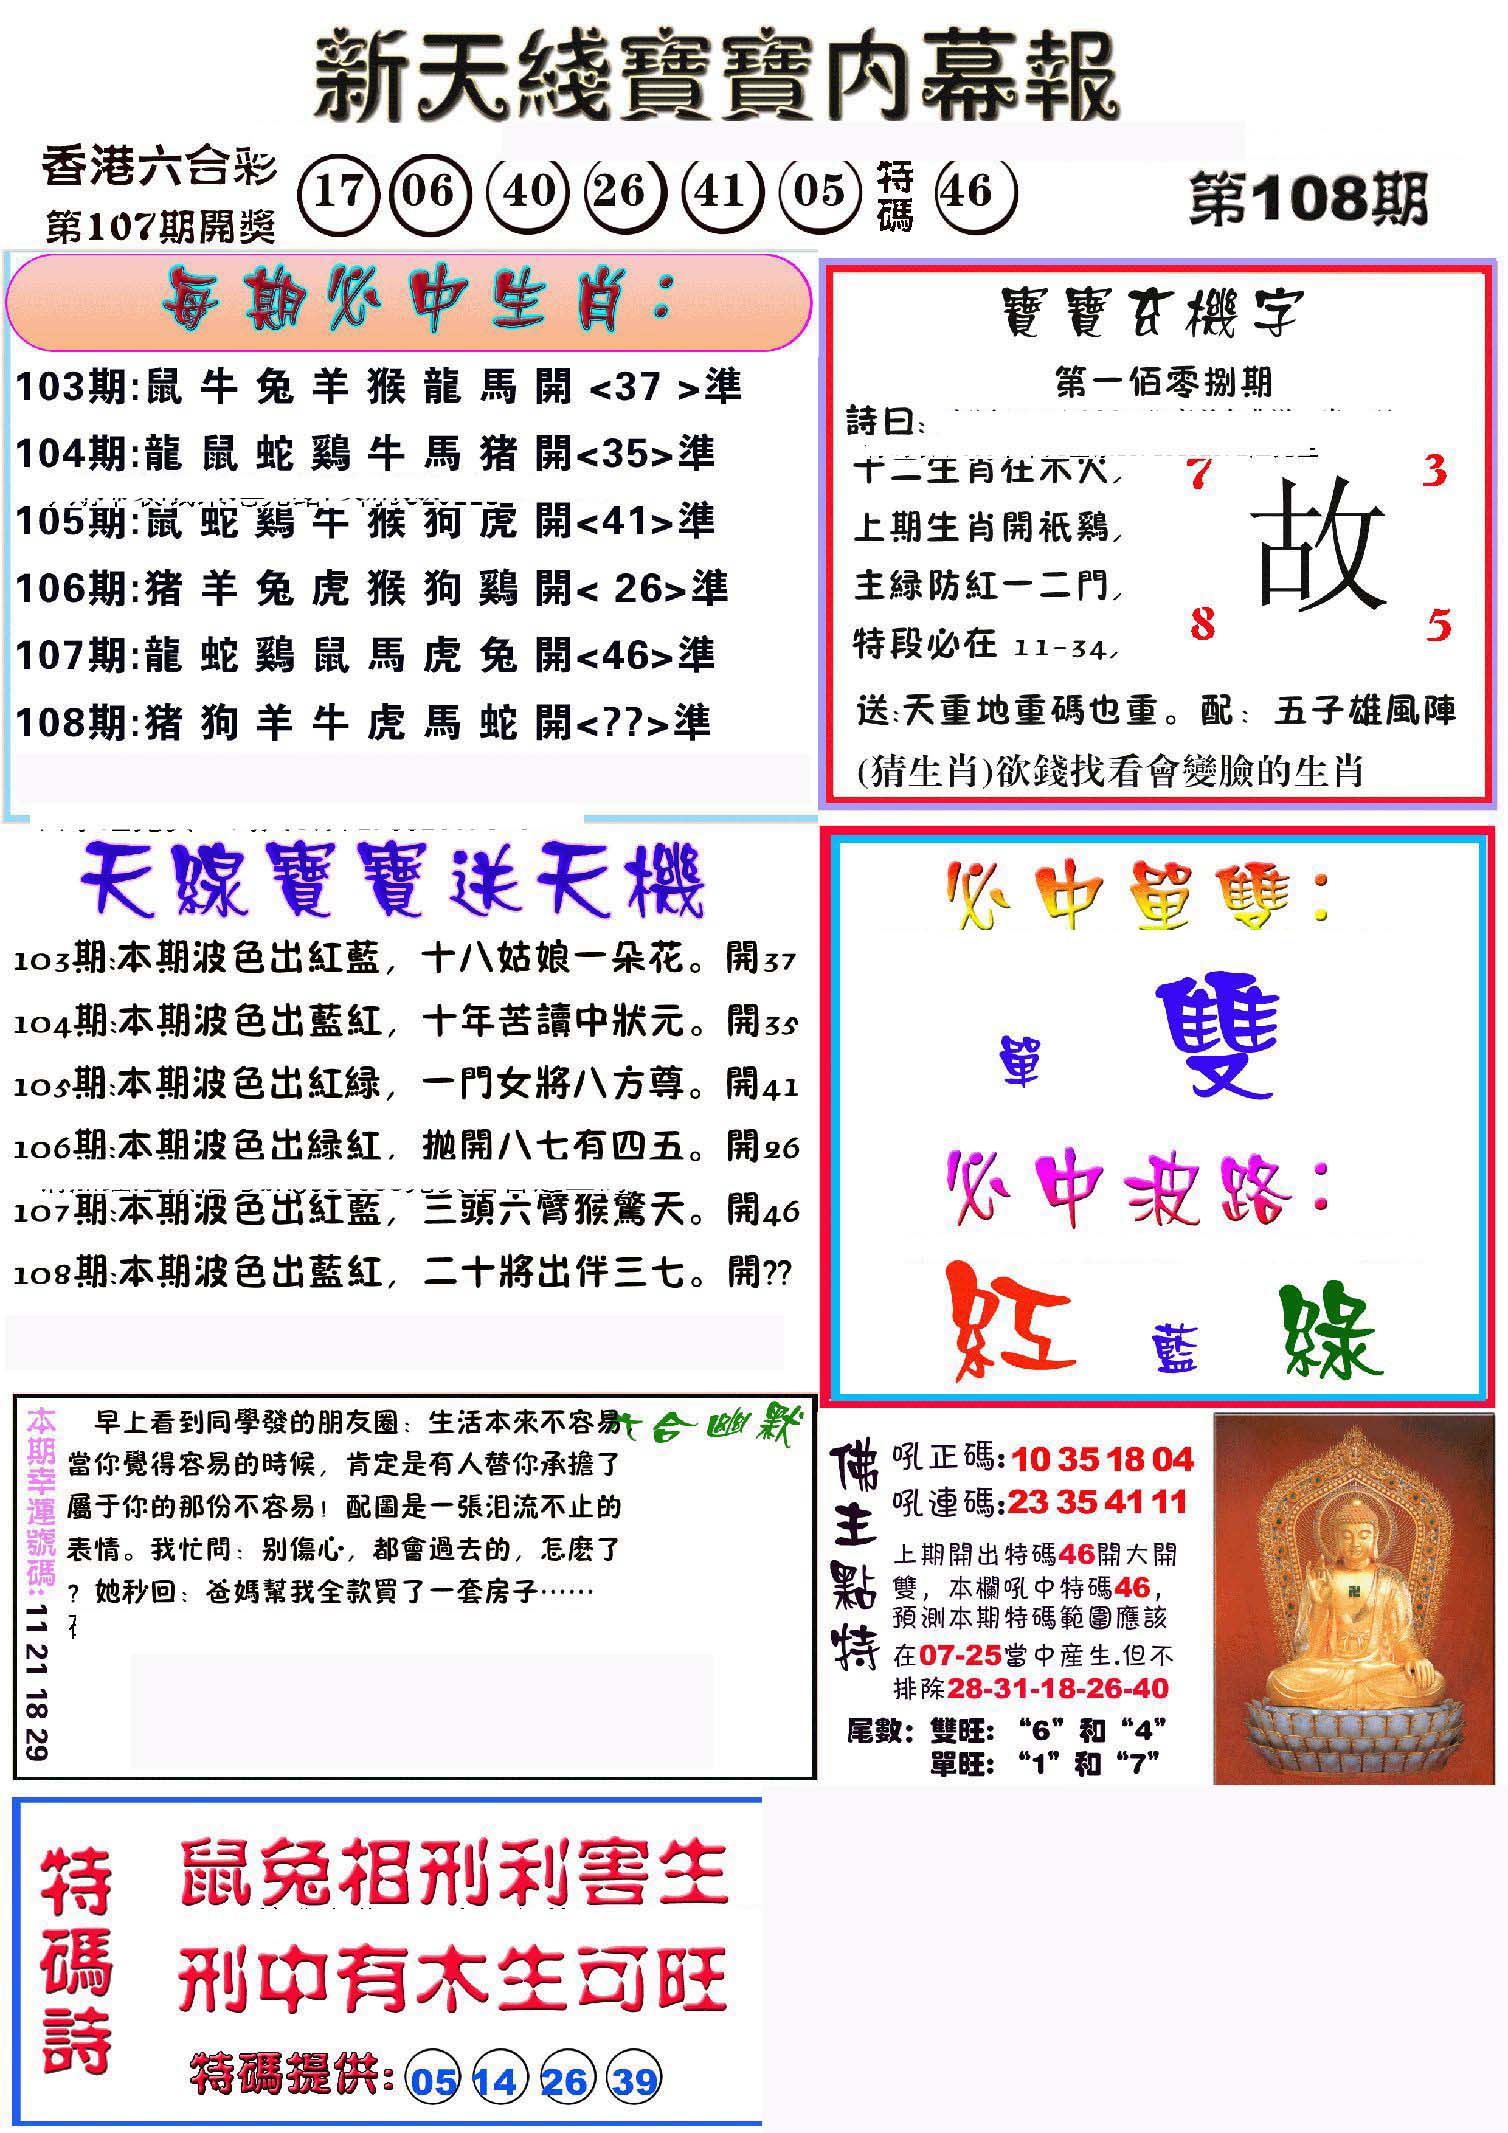 新天綫寶寶内幕報
香港六合彩
第107期開獎
17 06 40 26 41 05 特碼 46
第108期
每期必中生肖：
103期:鼠 牛 兔 羊 猴 龍 馬 開 <37 >準
104期:龍 鼠 蛇 鷄 牛 馬 猪 開<35>準
105期:鼠 蛇 鷄 牛 猴 狗 虎 開<41>準
106期:猪 羊 兔 虎 猴 狗 鷄 開< 26>準
107期:龍 蛇 鷄 鼠 馬 虎 兔 開<46>準
108期:猪 狗 羊 牛 虎 馬 蛇 開<??>準
寶寶玄機字
第一佰零捌期
詩曰:
十二生肖在木火,
上期生肖開衹鷄,
主緑防紅一二門,
特段必在 11-34,
7 3
故
8 5
送:天重地重碼也重。配: 五子雄風陣
(猜生肖)欲錢找看會變臉的生肖
天線寶寶送天機
103期:本期波色出紅藍, 十八姑娘一朵花。開37
104期:本期波色出藍紅, 十年苦讀中狀元。開35
105期:本期波色出紅緑, 一門女將八方尊。開41
106期:本期波色出緑紅, 抛開八七有四五。開26
107期:本期波色出紅藍, 三頭六臂猴驚天。開46
108期:本期波色出藍紅, 二十將出伴三七。開??
必中單雙：
單 雙
必中波路：
紅 藍 緑
六合幽默
本期幸運號碼: 11 21 18 29
早上看到同學發的朋友圈: 生活本來不容易
當你覺得容易的時候, 肯定是有人替你承擔了
屬于你的那份不容易! 配圖是一張泪流不止的
表情。我忙問: 别傷心, 都會過去的, 怎麽了
? 她秒回: 爸媽幫我全款買了一套房子……
佛主點特
吼正碼:10 35 18 04
吼連碼:23 35 41 11
上期開出特碼46開大開
雙, 本欄吼中特碼46,
預測本期特碼範圍應該
在07-25當中産生.但不
排除28-31-18-26-40
尾數: 雙旺: “6”和“4”
單旺: “1”和“7”
特碼詩
鼠兔相刑利害生
刑中有木生可旺
特碼提供: 05 14 26 39